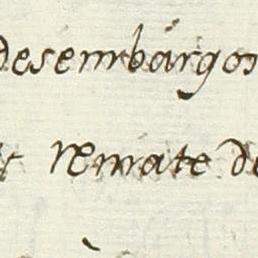 desembargos
Remate de